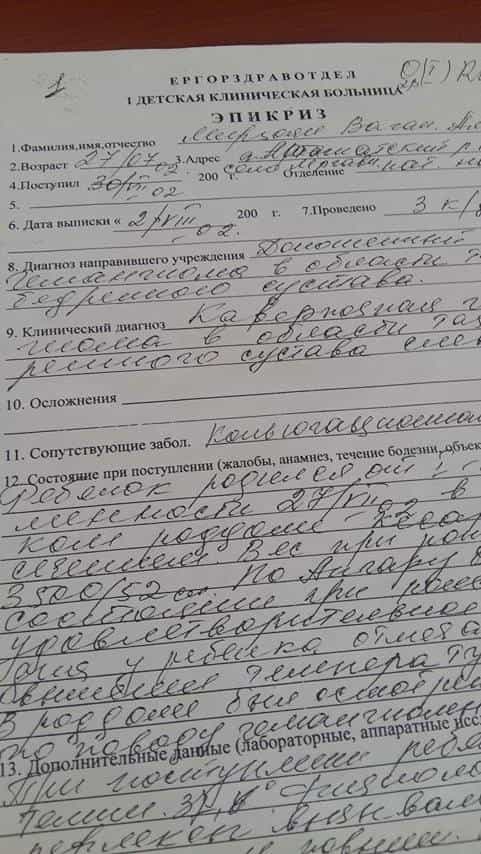 1 O(I) Rh
ЕРГОРЗДРАВОТДЕЛ
1 ДЕТСКАЯ КЛИНИЧЕСКАЯ БОЛЬНИЦА
ЭПИКРИЗ
1.Фамилия,имя,отчество Ваган
2.Возраст 27/07 02. 3.Адрес
4.Поступил 30/VII 02 200 г. Отделение пат
5.
6. Дата выписки « 2/VIII 02. 200 г. 7.Проведено 3 к/
8. Диагноз направившего учреждения Доношенный
Гемангиома в области т
бедренного сустава.
9. Клинический диагноз Кавернозная г
гиома в области таз
ренного сустава
10. Осложнения
11. Сопутствующие забол. Конъюгационная
12. Состояние при поступлении (жалобы, анамнез, течение болезни, объек
Ребенок родился от
менности 27/VII 02 в
ком роддоме кесар
сечением. Вес при рож
3500/52 см. По Апгару 8
состояние при рож
удовлетворительное
дня у ребенка отмеча
повышение температу
В роддоме был осмотрен
по поводу гемангиом
13. Дополнительные данные (лабораторные, аппаратные исс
При поступлении ребе
темпи. 37,6° Физиоло
рефлексы вял